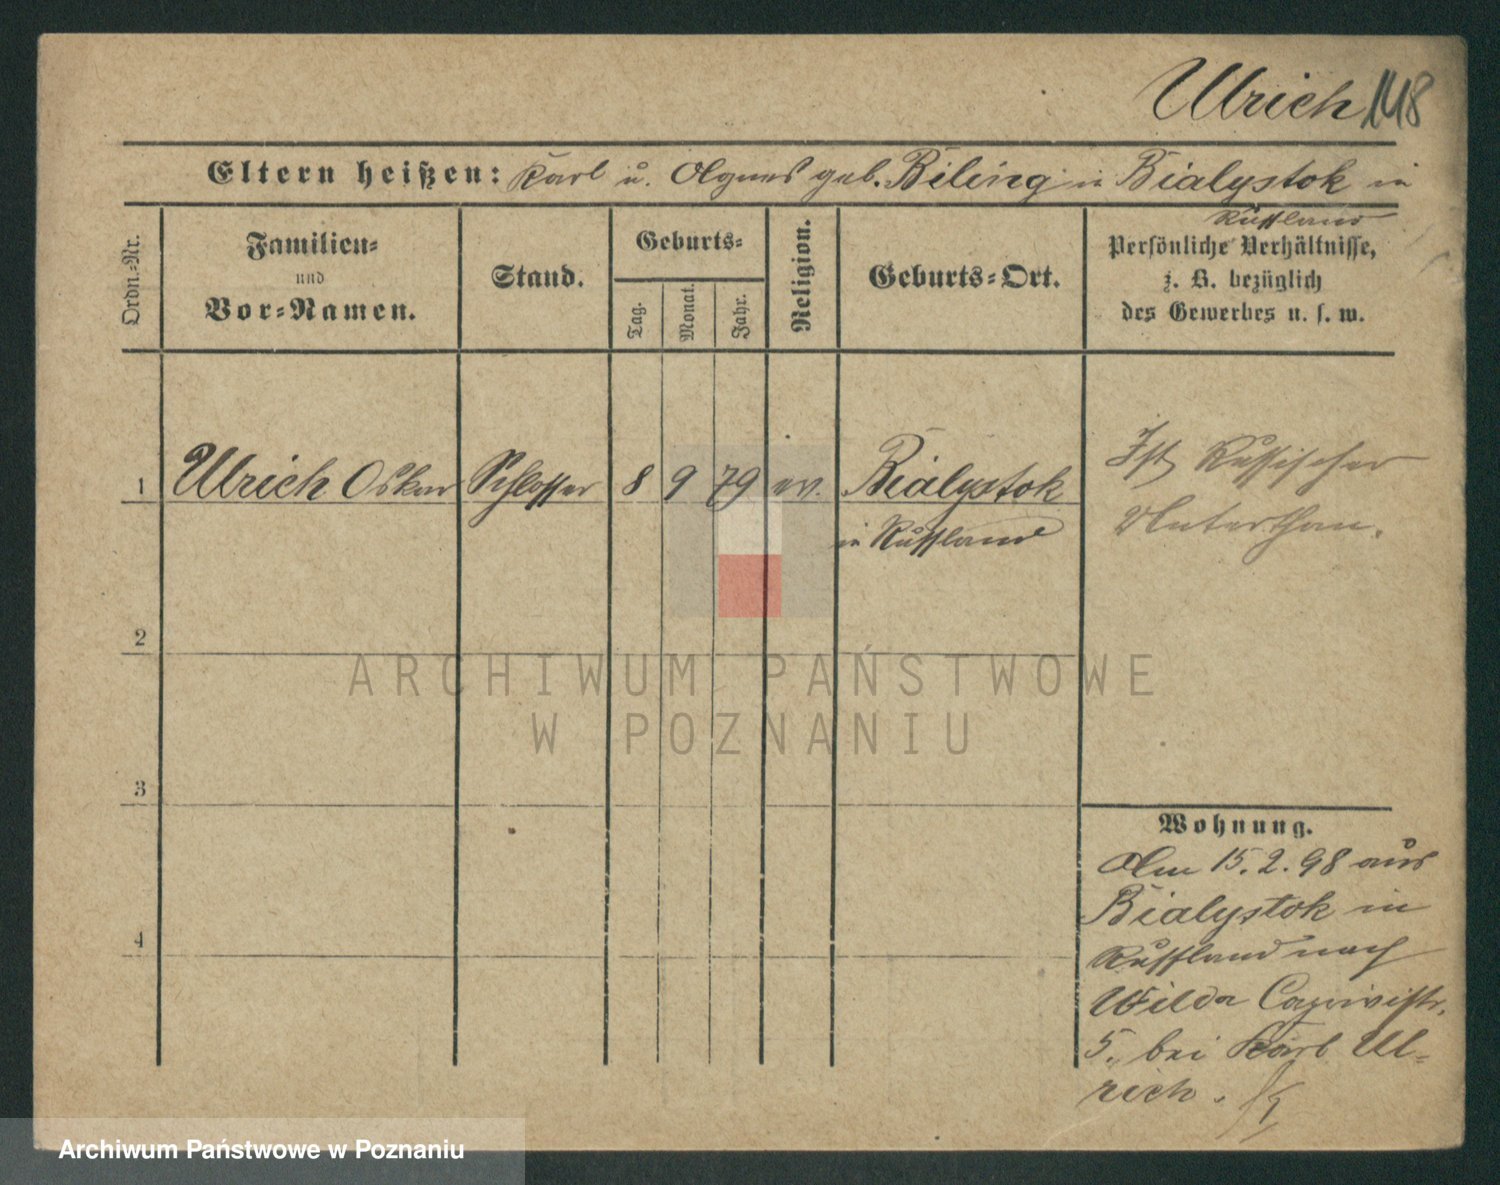 Ulrich 148
Eltern heißen: Karl u. Agnes geb. Biling in Bialystok in
Russland
Ordn.-Nr.
Familien-
und
Vor-Namen.
Stand.
Geburts-
Tag.
Monat.
Jahr.
Religion.
Geburts-Ort.
Persönliche Verhältnisse,
z. B. bezüglich
des Gewerbes u. s. w.
1 Ulrich Oskar Schlosser 8 9 79 ev. Bialystok
in Russland
Ist Russischer
Unterthan.
2
3
4
Wohnung.
Am 15.2.98 aus
Bialystok in
Russland nach
Wilda Caprivistr.
5. bei Karl Ul-
rich.
ARCHIWUM PAŃSTWOWE
W POZNANIU
Archiwum Państwowe w Poznaniu